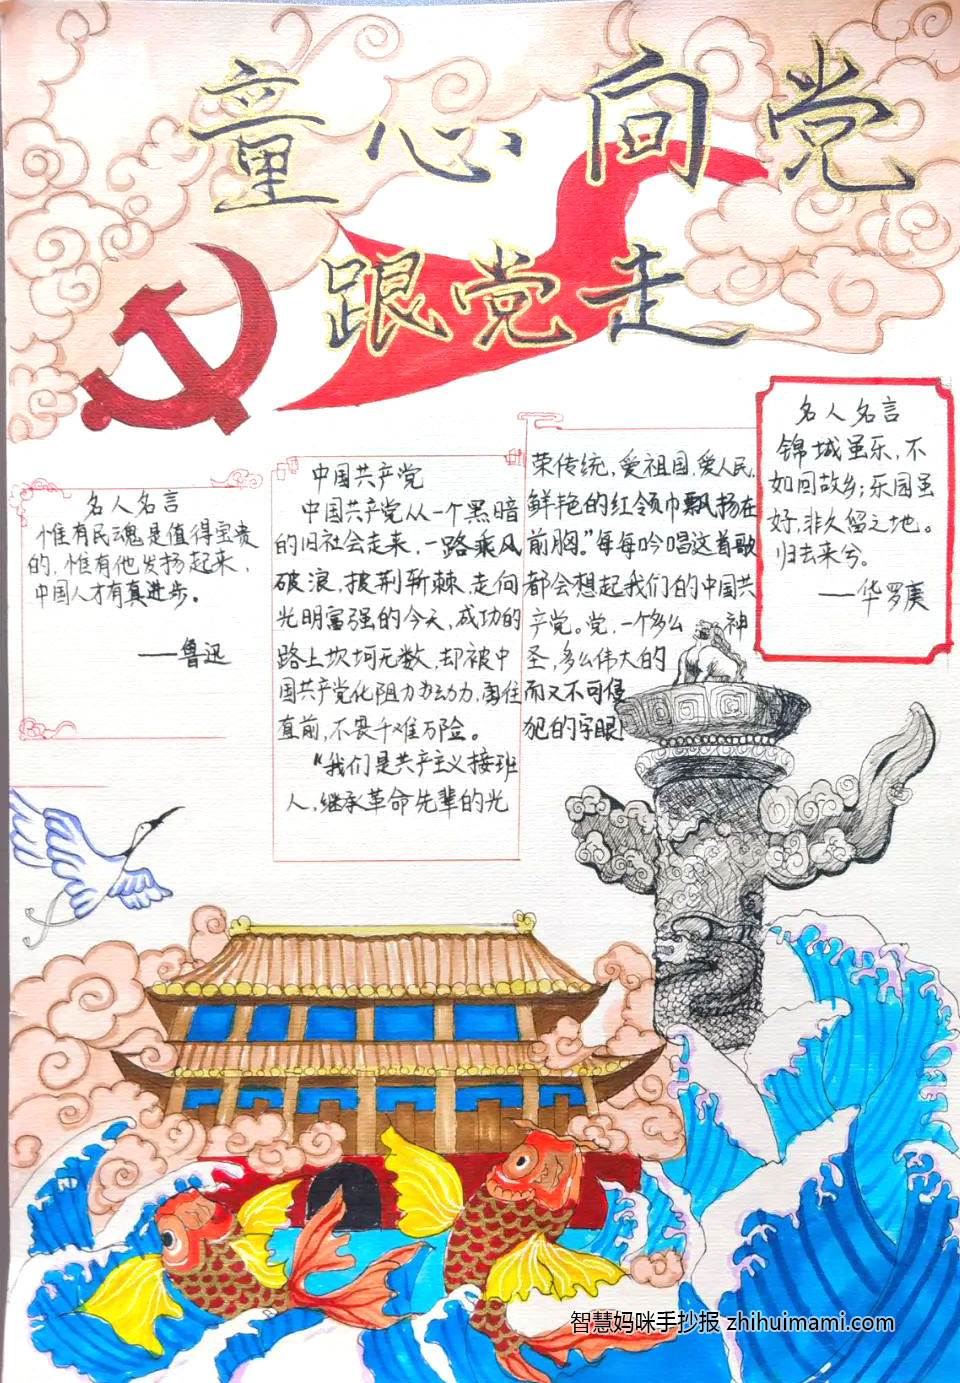 童心向党
跟党走
名人名言
惟有民魂是值得宝贵
的,惟有他发扬起来,
中国人才有真进步。
——鲁迅
中国共产党
中国共产党从一个黑暗
的旧社会走来,一路乘风
破浪,披荆斩棘,走向
光明富强的今天,成功的
路上坎坷无数,却被中
国共产党化阻力为动力,勇往
直前,不畏千难万险。
“我们是共产主义接班
人,继承革命先辈的光
荣传统,爱祖国,爱人民,
鲜艳的红领巾飘扬在
前胸。”每每吟唱这首歌
都会想起我们的中国共
产党。党,一个多么神
圣,多么伟大的
而又不可侵
犯的字眼!
名人名言
锦城虽乐,不
如回故乡;乐园虽
好,非久留之地。
归去来兮。
——华罗庚
智慧妈咪手抄报 zhihuimami.com